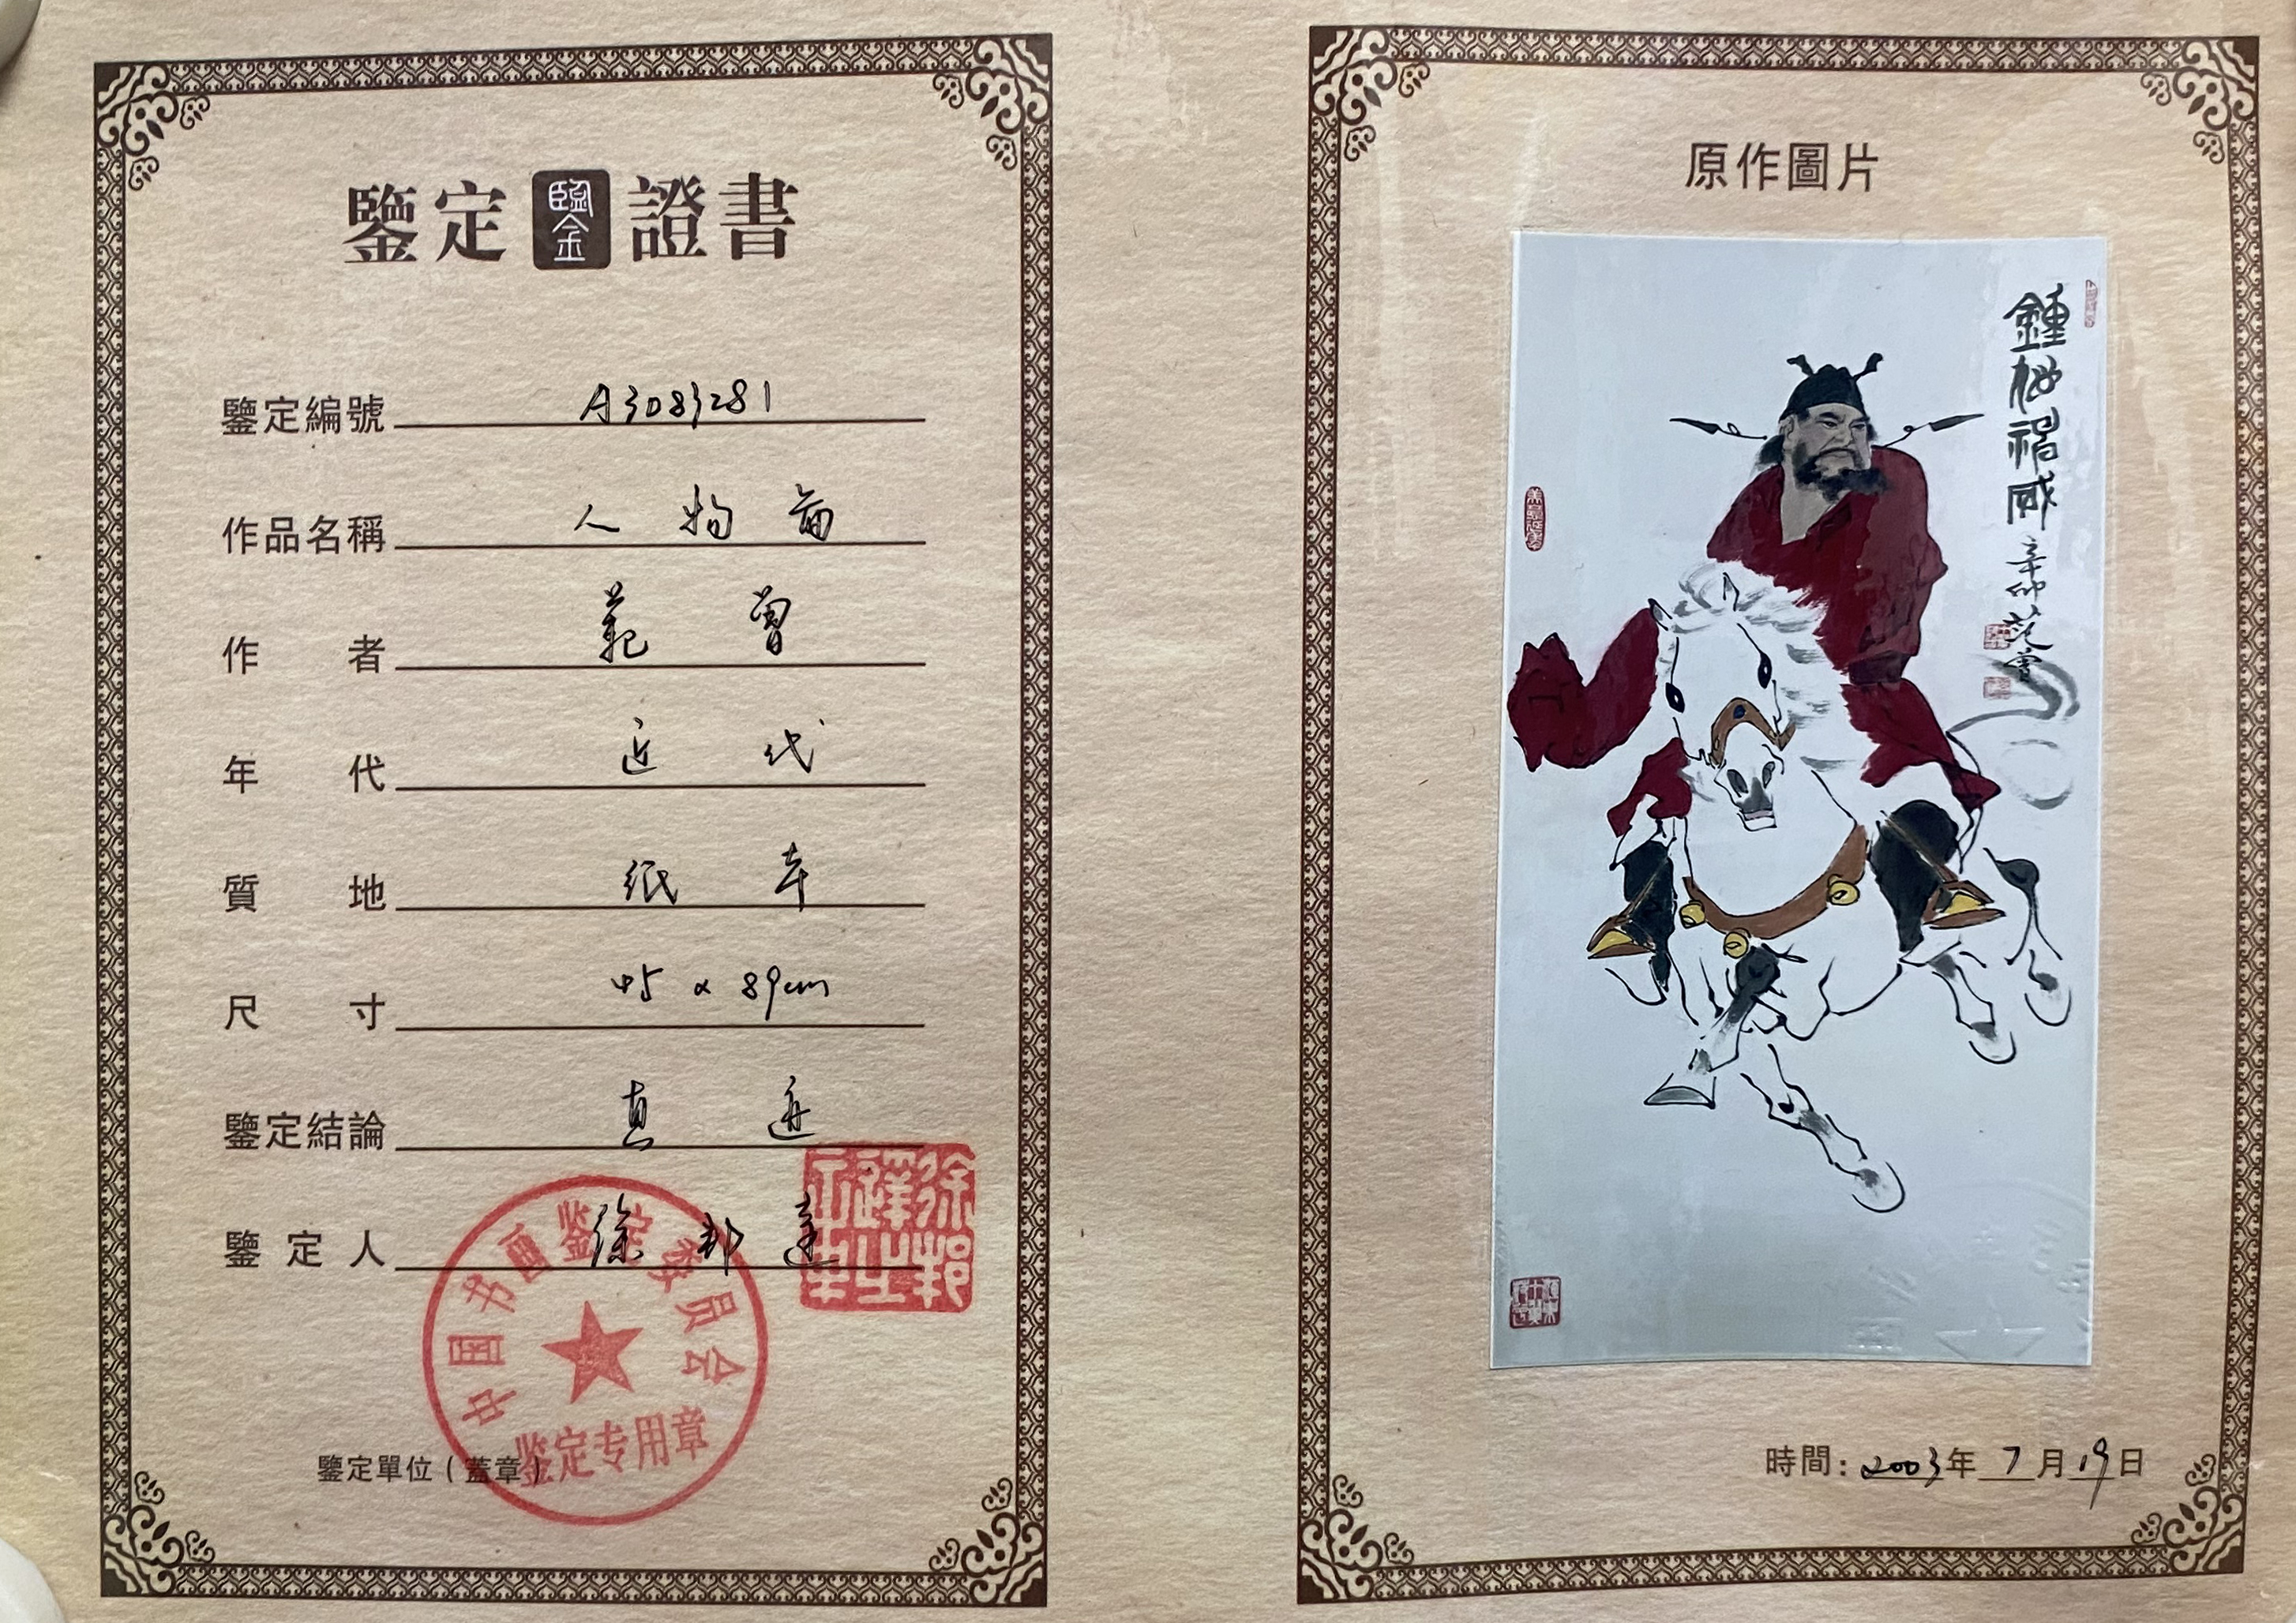 鑒定 鑒 證書
鑒定編號 A3083281
作品名稱 人物畫
作者 範曾
年代 近代
質地 紙本
尺寸 45 x 89cm
鑒定結論 真迹
鑒定人 徐邦達
中国书画鉴定委员会
鉴定专用章
鑒定單位(蓋章)
原作圖片
鍾馗
威
辛卯
范曾
時間:2003年7月19日